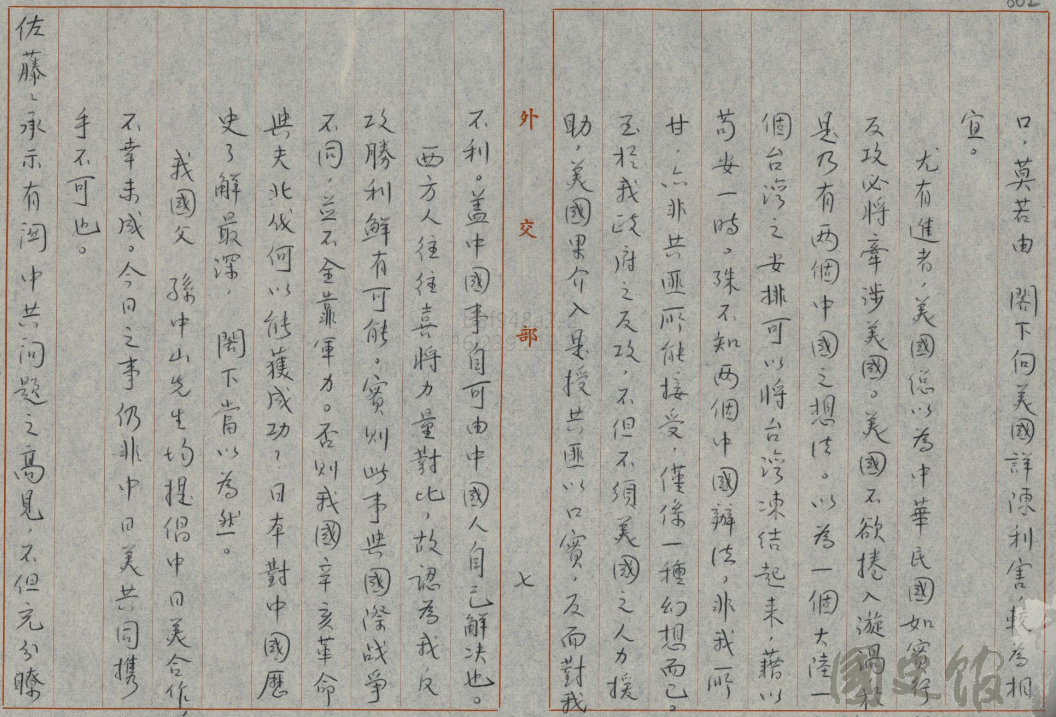 602
口，莫若由　閣下向美國詳陳利害，較為相
宜。
尤有進者，美國總以為中華民國如實行
反攻必將牽涉美國。美國不欲捲入漩渦，
是乃有兩個中國之想法。以為一個大陸一
個台灣之安排可以將台灣凍結起來，藉以
苟安一時。殊不知兩個中國辦法，非我所
甘，亦非共匪所能接受，僅係一種幻想而已。
至於我政府之反攻，不但不須美國之人力援
助，美國果介入是授共匪以口實，反而對我
外交部
七
不利。蓋中國事自可由中國人自己解決也。
西方人往往喜將力量對比，故認為我反
攻勝利鮮有可能。實則此事與國際戰爭
不同，並不全靠軍力。否則我國辛亥革命
與夫北伐何以能獲成功？日本對中國歷
史了解最深，　閣下當以為然。
我國父　孫中山先生均提倡中日美合作，
不幸未成。今日之事仍非中日美共同携
手不可也。
佐藤：承示有関中共问題之高見，不但充分瞭
國史館